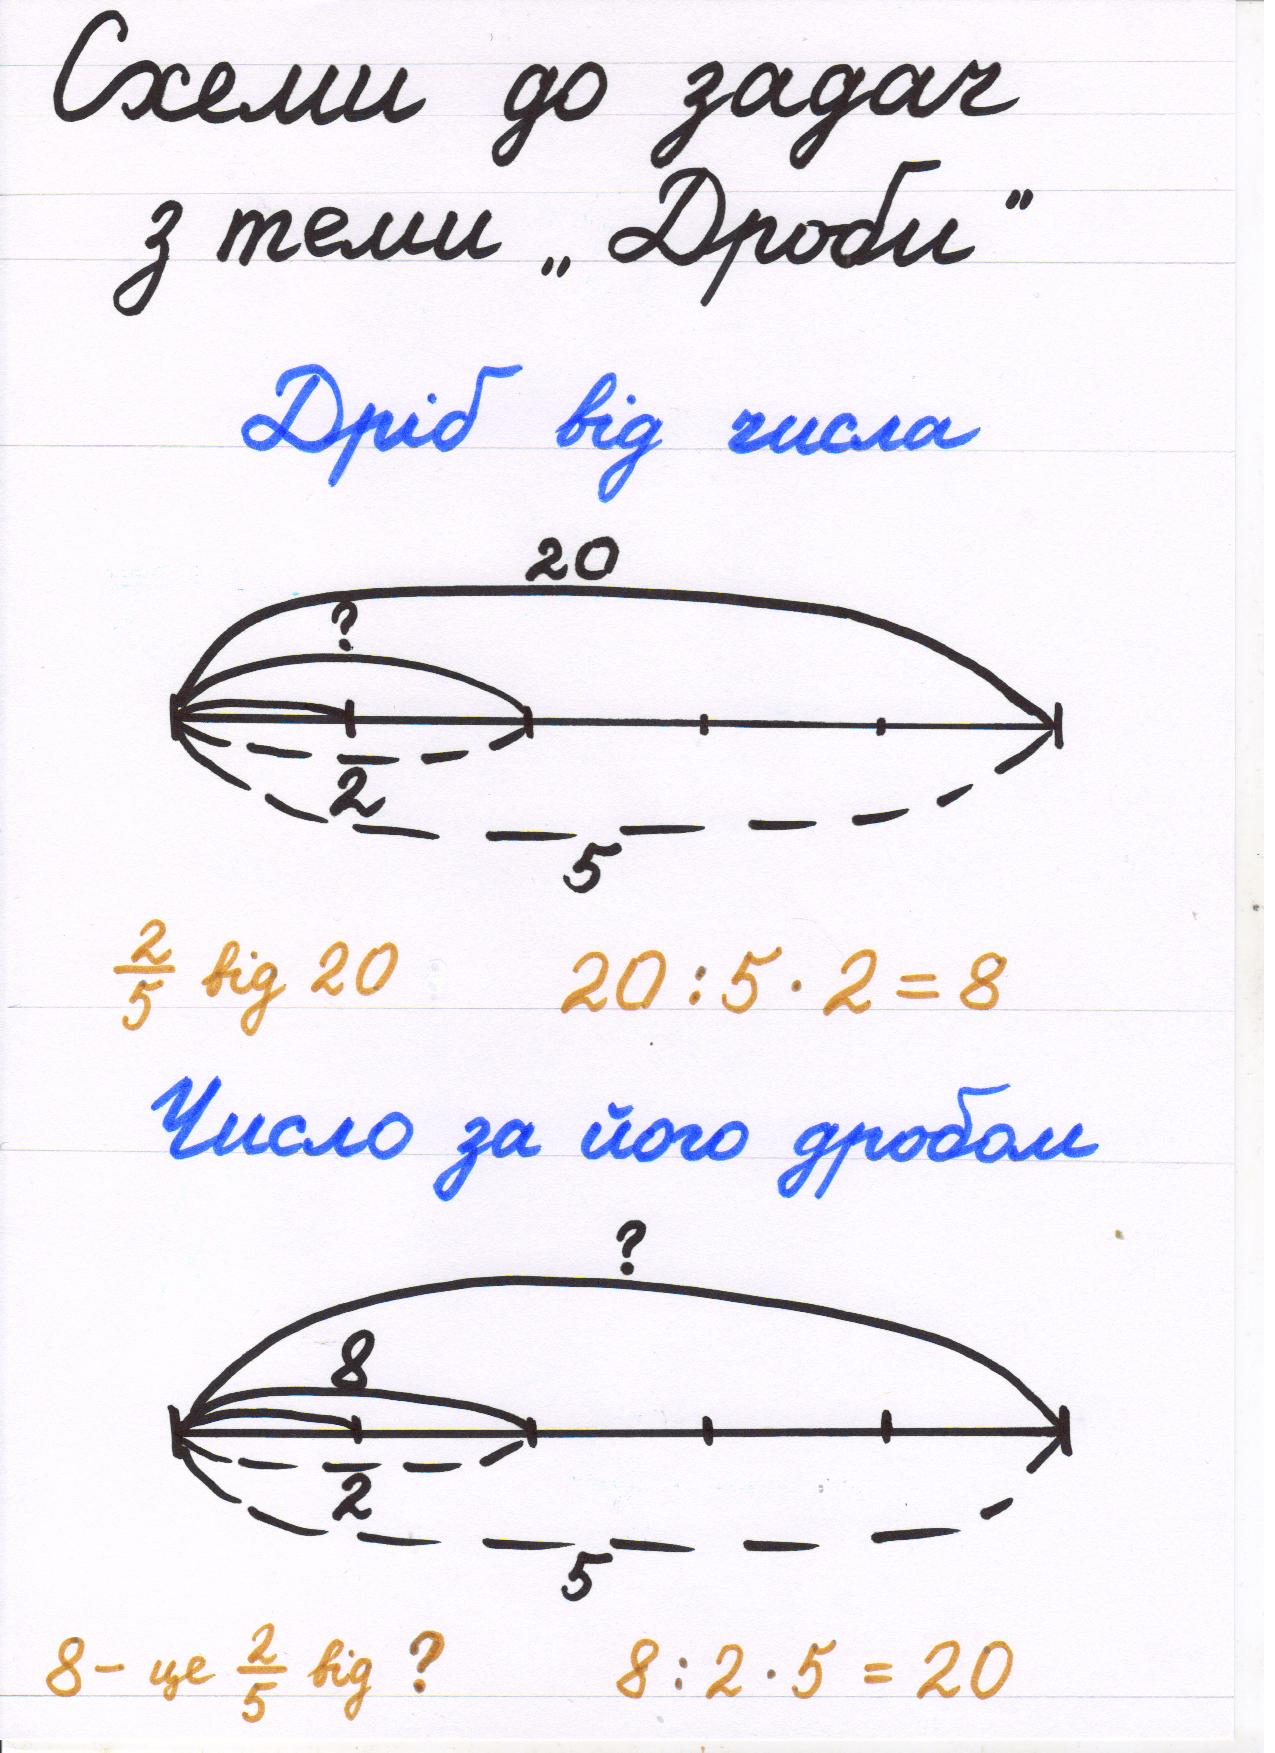 Схеми до задач
з теми „Дроби"
Дріб від числа
20
?
2
5
2/5 від 20 20 : 5 · 2 = 8
Число за його дробом
?
8
2
5
8 – це 2/5 від ? 8 : 2 · 5 = 20